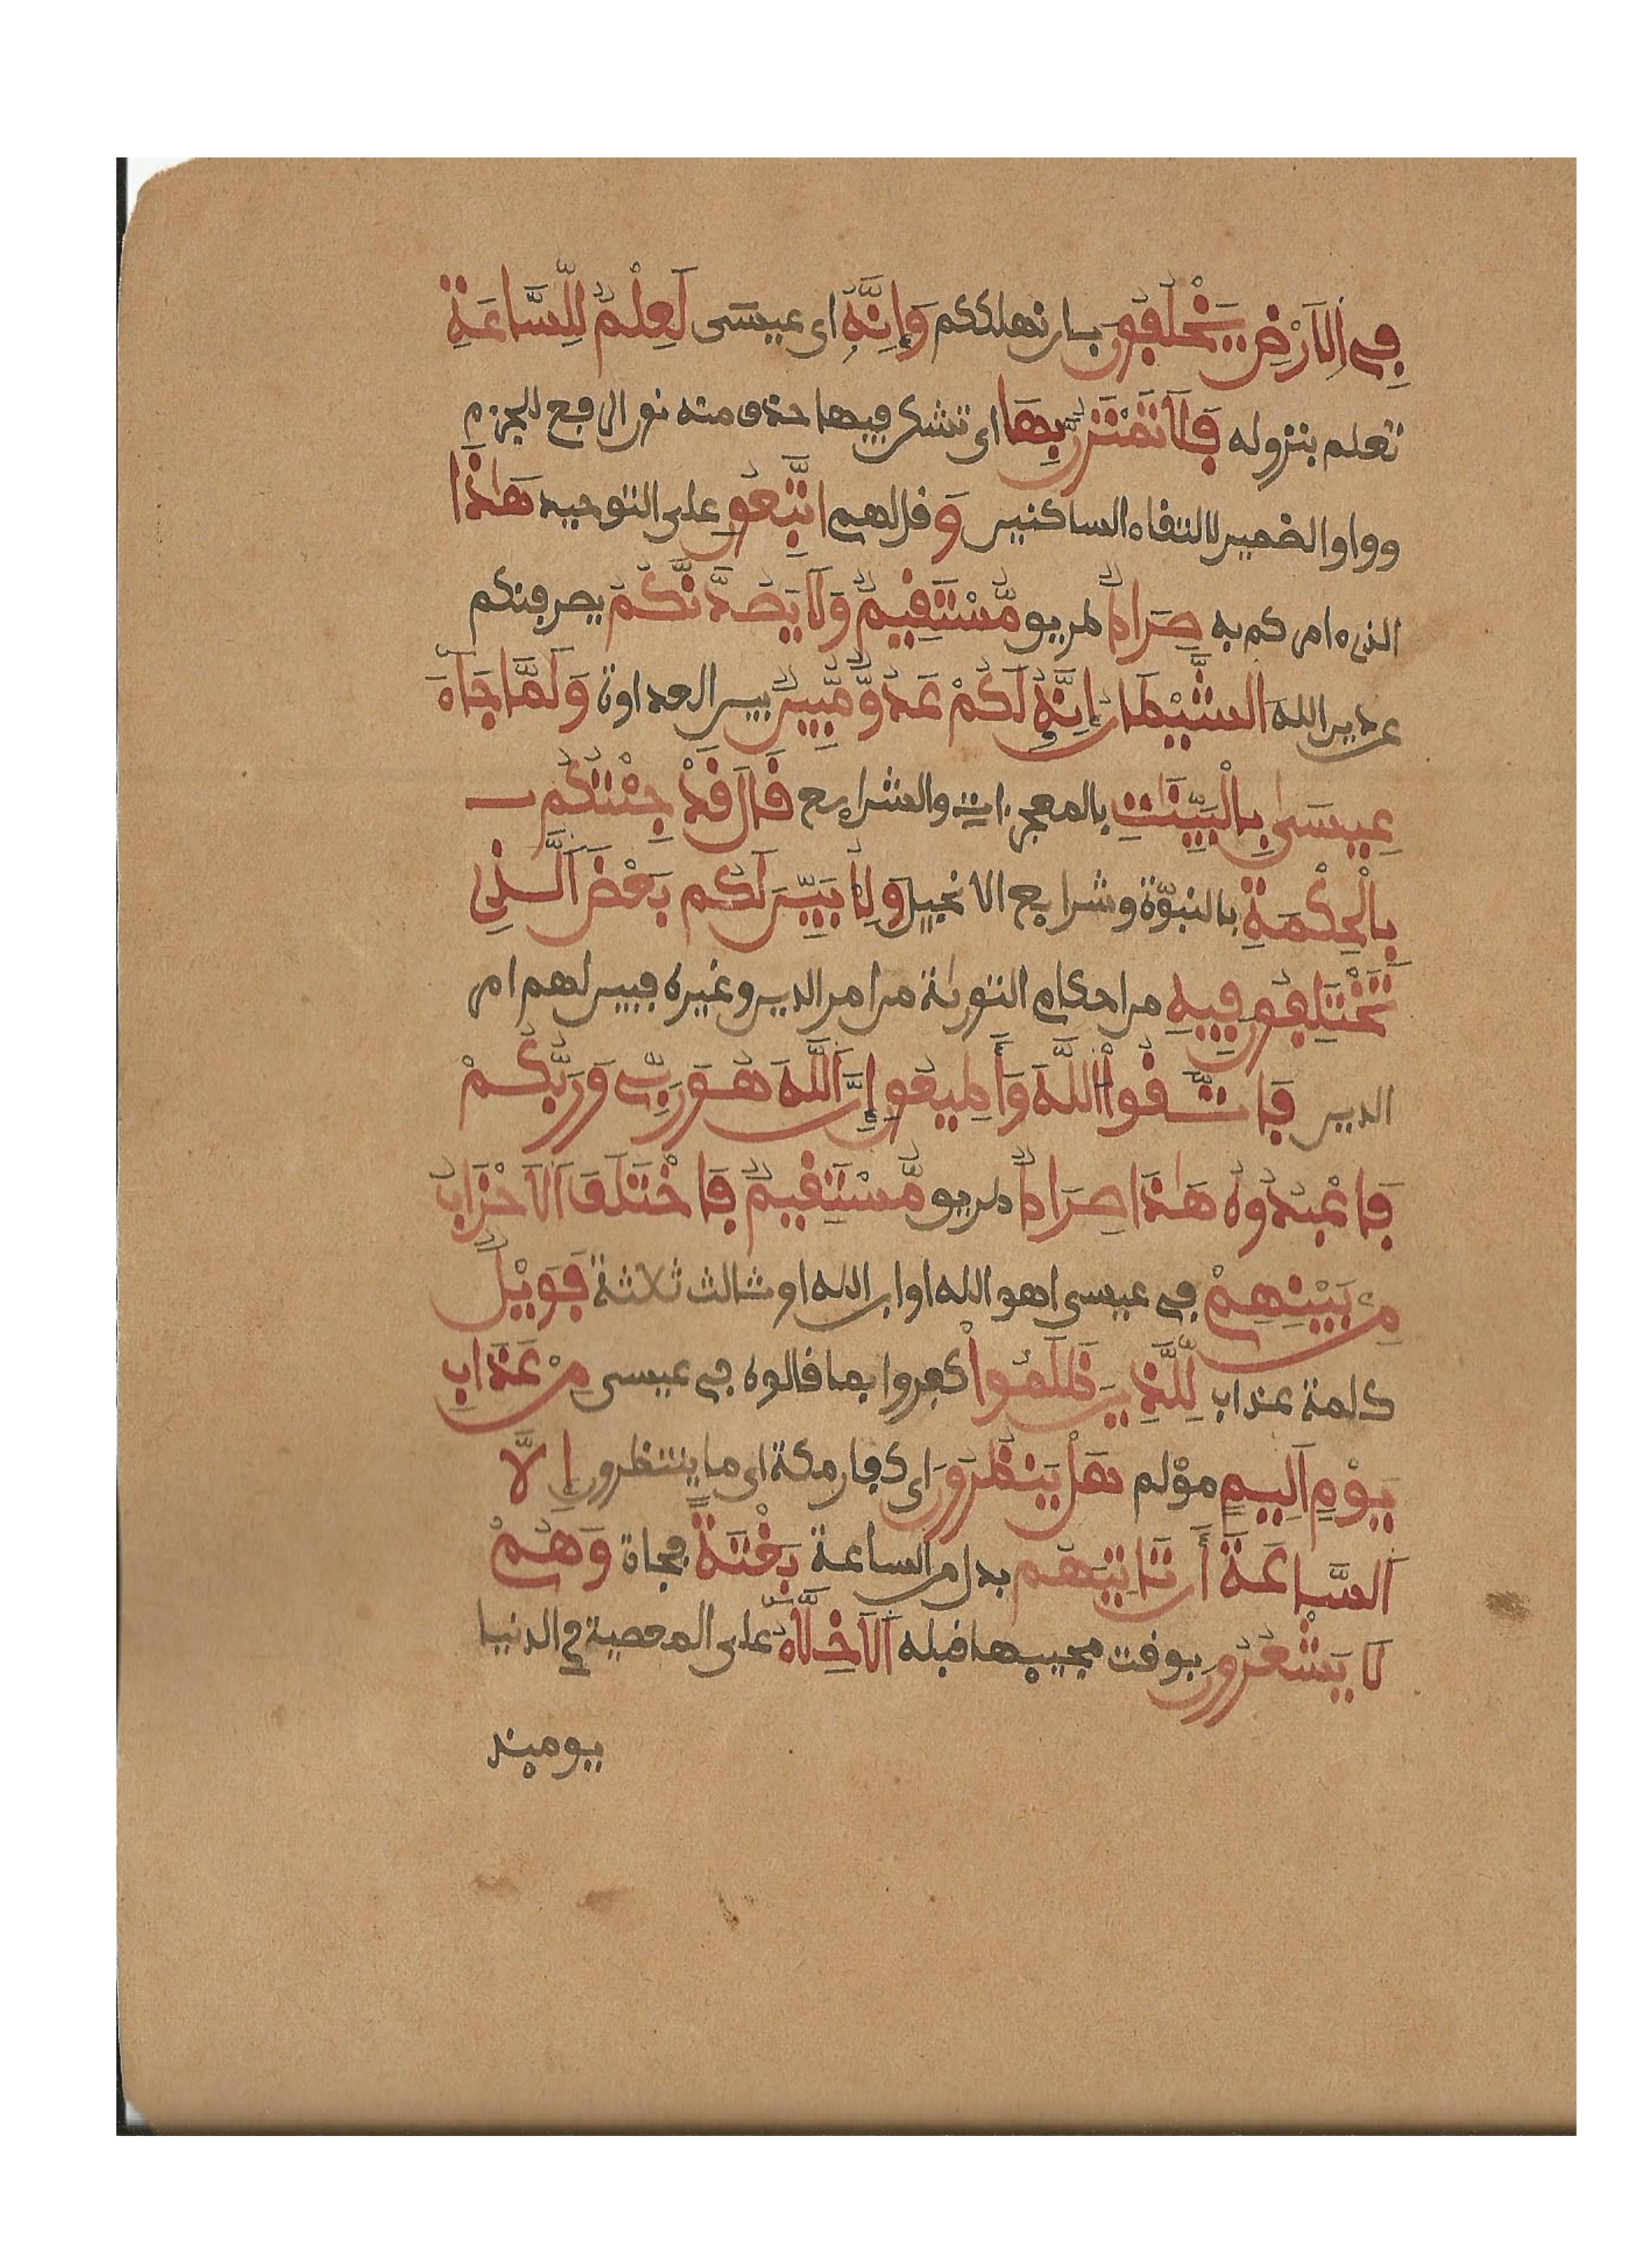 فِے اِ۬لَارْضِ يَخْلُفُونَ بان نهلككم وَإِنَّهُۥ اى عيسَى لَعِلْمٞ لِّلسَّاعَةِ
تعلم بنزوله فَلَا تَمْتَرُنَّ بِهَا اى تشكن فيها حذف منه نون الرفع للجزم
وواو الضمير لالتفاء الساكنين وَ فل لهم اتَّبِعُونِ على التوحيد هَٰذَا
الذى ءامركم به صِرَاطٞ طريق مُّسْتَقِيمٞ وَلَا يَصُدَّنَّكُمُ يصرفنكم
عن دين الله اَ۬لشَّيْطَانُ إِنَّهُۥ لَكُمْ عَدُوّٞ مُّبِينٞ بين العداوة وَلَمَّا جَآءَ
عِيسَىٰ بِالْبَيِّنَٰتِ بالمعجزات والشرايع قَالَ قَدْ جِئْتُكُم
بِالْحِكْمَةِ بالنبوّة وشرايع الانجيل وَلِأُبَيِّنَ لَكُم بَعْضَ اَ۬لَّذِى
تَخْتَلِفُونَ فِيهِ من احكام التورىٰة من امر الدين وغيره فبين لهم امر
الدين فَاتَّقُواْ اُ۬للَّهَ وَأَطِيعُونِ إِنَّ اَ۬للَّهَ هُوَ رَبِّے وَرَبُّكُمْ
فَاعْبُدُوهُ هَٰذَا صِرَاطٞ طريق مُّسْتَقِيمٞ فَاخْتَلَفَ اَ۬لَاحْزَابُ
مِنۢ بَيْنِهِمْ فے عيسى اهو الله او ابن الله او ثالث ثلاثة فَوَيْلٞ
كلمة عذاب لِّلَّذِينَ ظَلَمُواْ كفروا بما فالوه فے عيسى مِنْ عَذَابِ
يَوْمٍ اَلِيمٍ مؤلم هَلْ يَنظُرُونَ اى كفار مكة اى ما ينتظرون إِلَّا
اَ۬لسَّاعَةَ أَن تَاتِيَهُم بدل من الساعة بَغْتَةٗ فجاة وَهُمْ
لَا يَشْعُرُونَ بوفت مجييها فبله اَ۬لَاخِلَّآءُ على المعصية في الدنيا
يوميذ